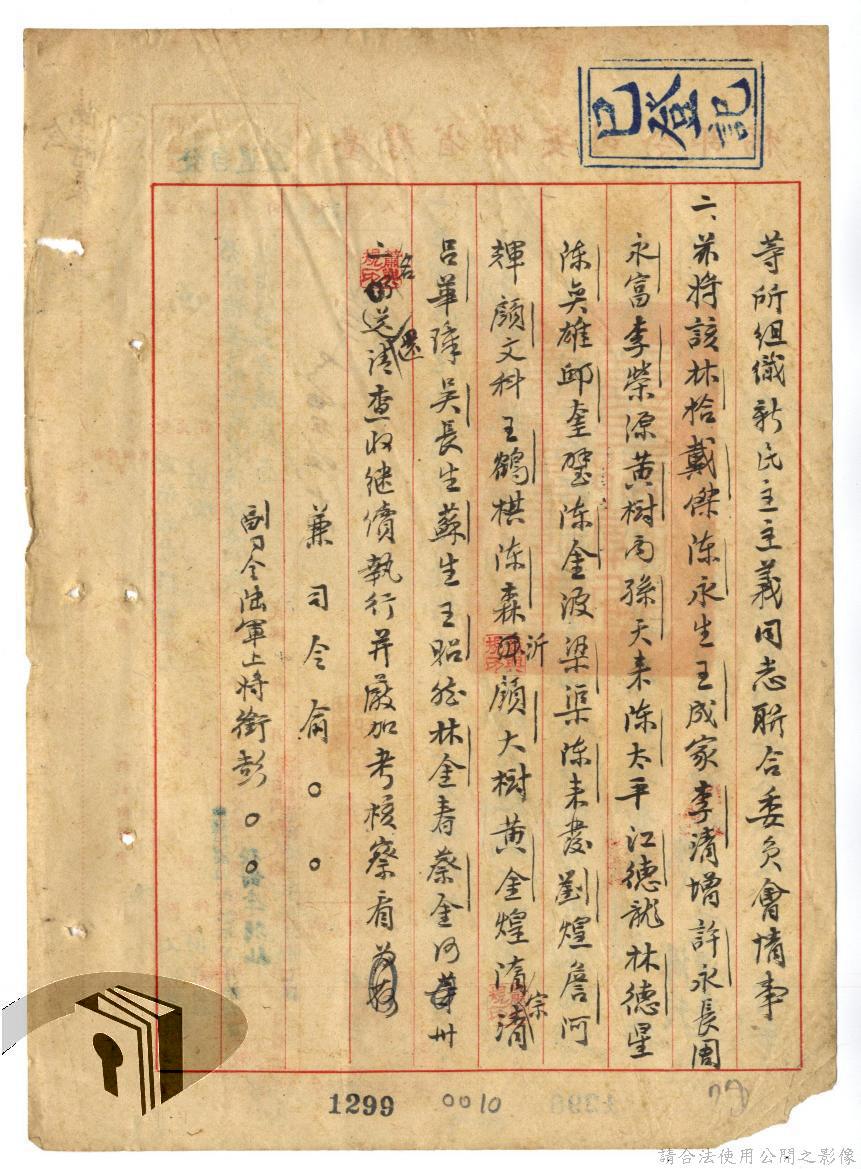 已登記
等所組織新民主主義同志聯合委員會情事
二、茲將該林拾戴傑陳永生王成家李清增許永長周
永富李榮源黃樹丙孫天來陈太平江德龍林德星
陈英雄邱奎璧陈金波梁渠陈来發劉煌詹阿
輝顏文科王鶴棋陈森沂顏大樹黃金煌隋清宗
吕華璋吴長生蘇生王照林金春蔡金河卅
一名送還請查收继續執行并嚴加考核察看
兼司令俞○○
副司令陆軍上將銜彭○○
1299
0010
請合法使用公開之影像